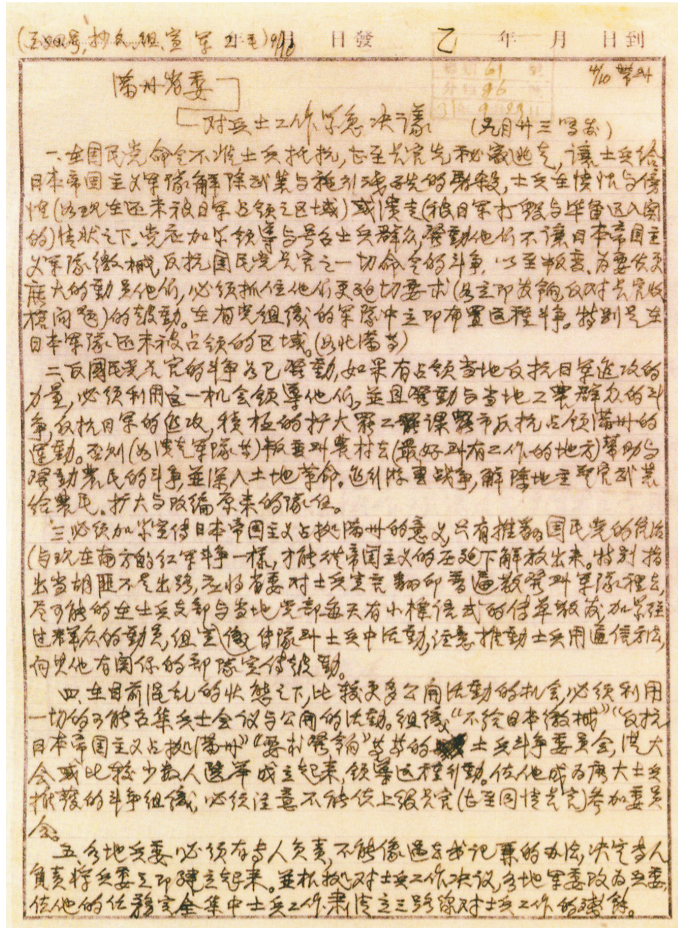 年 月 日發 乙 年 月 日到
满州省委
对兵士工作紧急决议 （九月廿三日发）
一、在国民党命令不准士兵抵抗，甚至长官先秘密逃走，让士兵给
日本帝国主义军队解除武装与的，士兵在愤慨与
（如现在还未被日军占领之区域）或溃走（被日军打毁与毕备退入関
的）情状之下。党应加紧领导与号召士兵群众，發動他们不讓日本帝国主
义军队缴械，反抗国民党长官之一切命令的斗争，以至叛变。为要發
廣大的動员他们，必须抓住他们更迫切要求（如立即發餉反对长官
）的鼓動。在有党组織的军隊中立即布置这种斗争。特别是在
日本军隊还未被占领的区域。（如北满等）
二、反國民党长官的斗争，如果有占领当地反抗日军進攻的
力量，必须利用这一机会领導他们，並且發動与当地工農群众的斗
争，反抗日军的進攻，積極的扩大罷工罷課罷市反抗占领满州的
運動。否则（如溃走军隊等）叛变到農村去（最好到有工作的地方）幫助与
發動農民的斗争並深入土地革命。進行游击战争，解除地主武装
给農民。扩大与改编原来的隊伍。
三、必须加紧宣传日本帝国主义占据满州的意义只有推翻國民党的统治
（与现在南方的红军斗争一樣，才能从帝国主义的压迫下解放出来。特别指
出当胡匪不是出路，应将省委对士兵宣言翻印普遍散發到军隊裡去，
尽可能的在士兵支部与当地党部每天有小標语式的传单散发，加紧经
过群众的動员，组宣传隊到士兵中活動，注意推動士兵用通信方法，
向其他有関係的部隊宣传鼓動。
四、在目前混乱的状態之下，比较更多公開活動的机会，必须利用
一切的可能召集兵士会议与公開的活動。组織“不给日本缴械”“反抗
日本帝国主义占据满州”“要求發餉”等等的士兵斗争委员会，从大
会或比较少数人選举成立起来，领導这种行動。使他成为廣大士兵
拥護的斗争组織，必须注意不能使上级长官（甚至同情长官）参加委员
会。
五、各地兵委必须有专人负责，不能像过去书记兼的办法，决定专人
負責将兵委立即建立起来。並根据对士兵工作决议，各地军委改为兵委，
使他的任務完全集中士兵工作肃清立三路線对士兵工作的残餘。